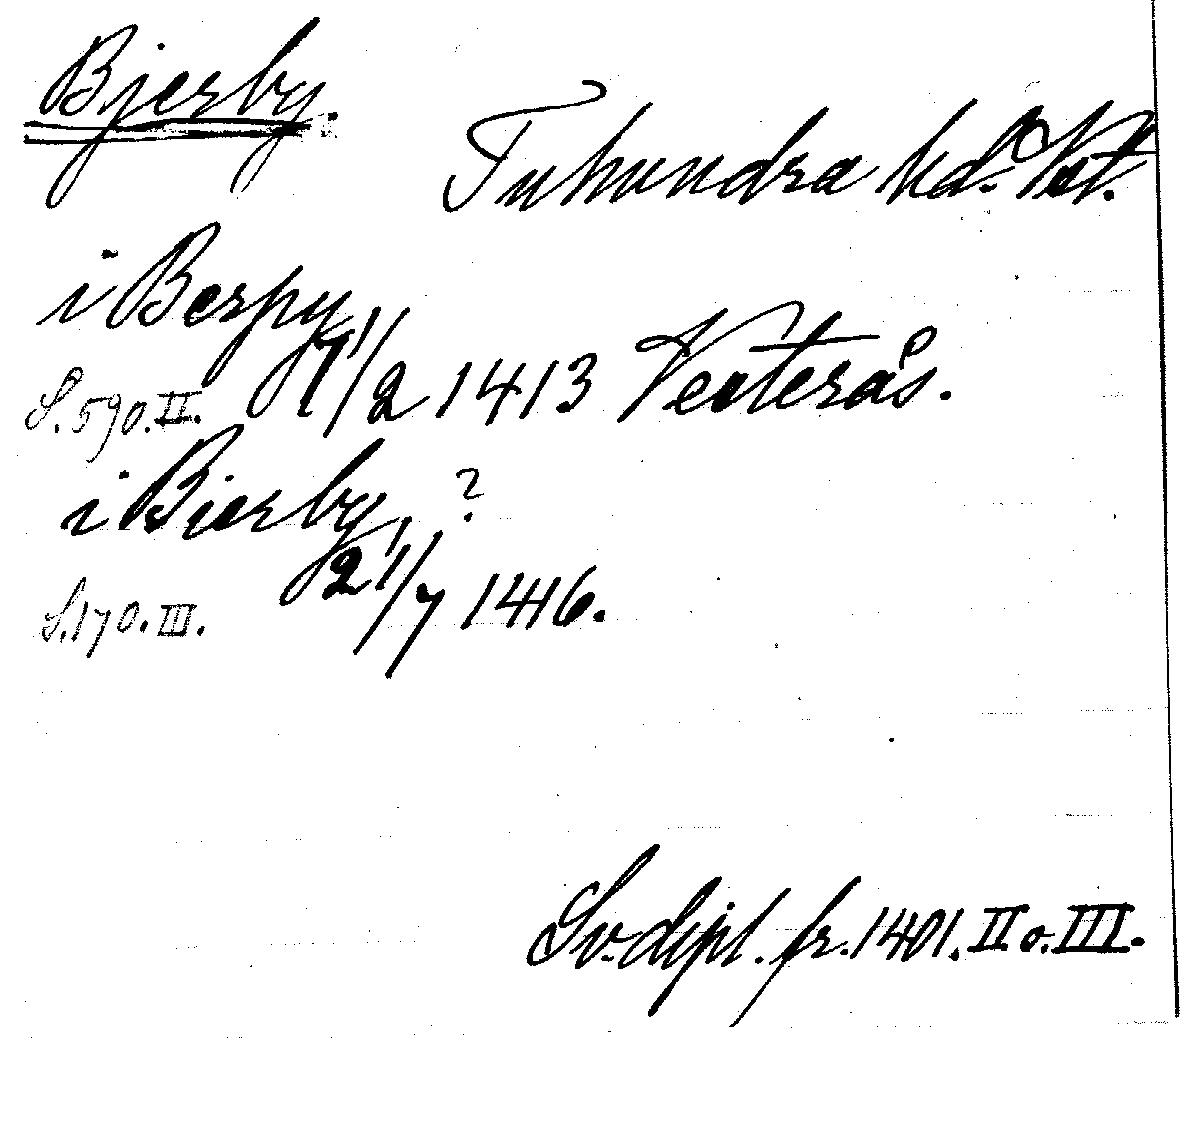 Bjerby.
Tuhundra hd. Vst.
i Berpy
7/2 1413 Vesterås.
S. 590. II.
i Bierby ?
21/7 1416.
S. 170. III.
Sv. dipl. fr. 1401. II o. III.